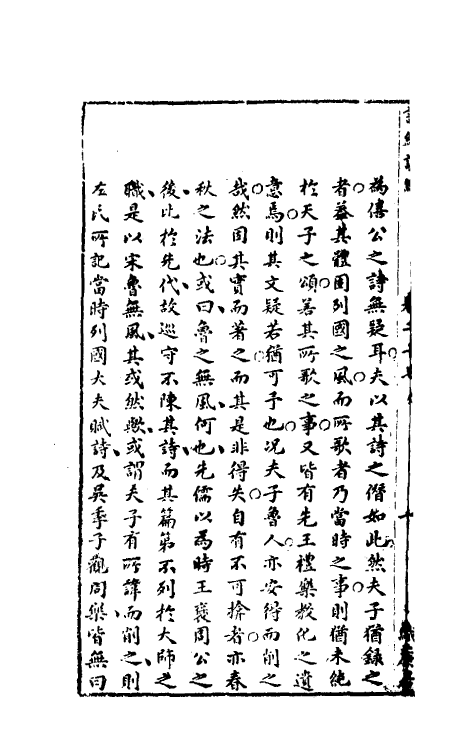 為僖公之詩無疑耳夫以其詩之僭如此然夫子猶錄之
者蓋其體固列國之風而所歌者乃當時之事則猶未純
於天子之頌若其所歌之事又皆有先王禮樂教化之遺
意焉則其文疑若猶可予也況夫子魯人亦安得而削之
哉然因其實而著之而其是非得失自有不可揜者亦春
秋之法也或曰魯之無風何也先儒以為時王褒周公之
後比於先代故巡守不陳其詩而其篇第不列於大師之
職是以宋魯無風其或然歟或謂夫子有所諱而削之則
左氏所記當時列國大夫賦詩及吳季子觀周樂皆無曰